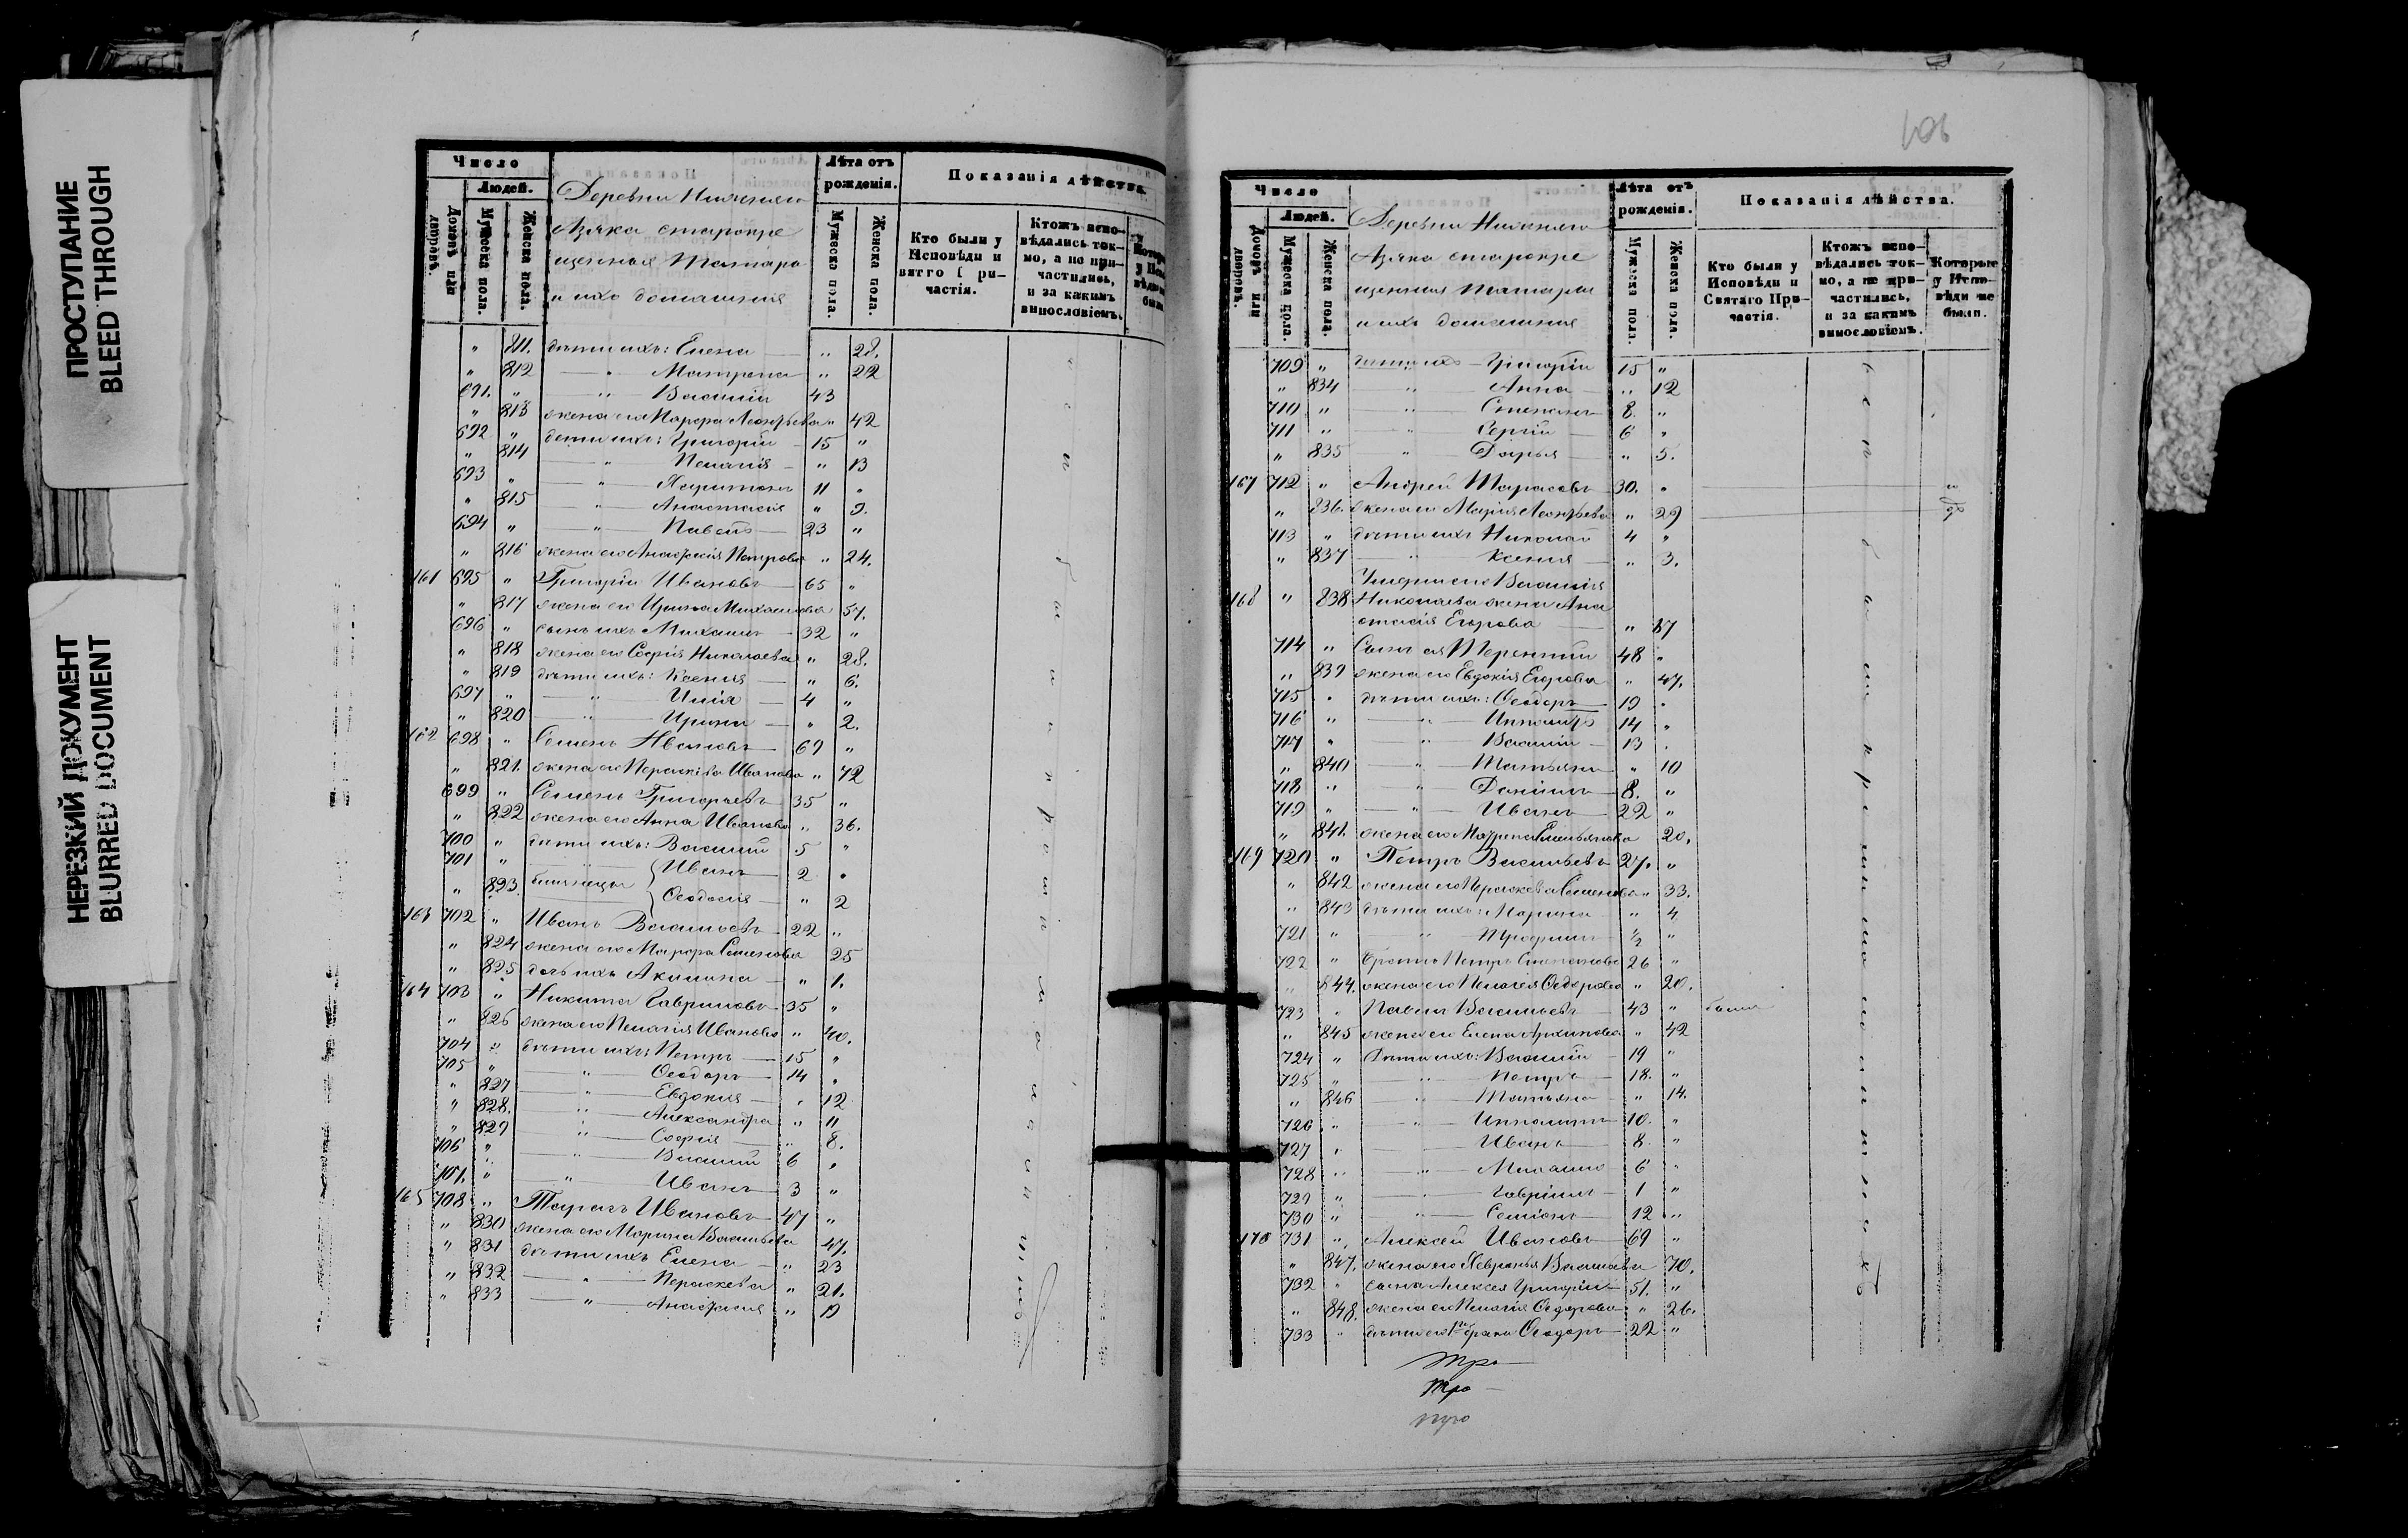 ПРОСТУПАНИЕ
BLEED THROUGH
НЕРЕЗКИЙ ДОКУМЕНТ
BLURRED DOCUMENT
Число
Людей.
Домовъ или дворовъ.
Мужеска пола.
Женска пола.
Деревни Нижняго
Азяка старокре
щенныя Татара
и ихъ домашнія
Лѣта отъ
рожденія.
Мужеска пола.
Женска пола.
Показанія дѣйства.
Кто были у
Исповѣди и
частія.
Ктожъ испо-
вѣдались ток-
мо, а не при-
частились,
и за какимъ
винословіемъ.
" 811. дѣти ихъ: Елена " 28.
" 812 " Матрена " 22
691. " " Василій 43
" 813 жена его Марфа Леонтьева " 42
692 " дѣти ихъ: Григорій 15 "
" 814 " Пелагія " 13
693 " " Харитонъ 11 "
" 815 " Анастасія " 9.
694 " " Павелъ 23 "
" 816 жена его Анастасія Петрова " 24.
161 695 " Григорій Ивановъ 65 "
" 817 жена его Ирина Михаилова 57.
696 " сынъ ихъ Михаилъ 32 "
" 818 жена его Софія Николаева " 28.
" 819 дѣти ихъ: Ксенія " 6.
697 " " Илія 4 "
" 820 " Ирина " 2.
162 698 " Семенъ Ивановъ 69 "
" 821. жена его Параскева Иванова " 72
699 " Семенъ Григорьевъ 35 "
" 822 жена его Анна Иванова " 36.
700 " дѣти ихъ: Василій 5 "
701 " близнецы Иванъ 2 "
" 823. Ѳеодосія " 2
163 702 " Иванъ Васильевъ 22 "
" 824 жена его Марфа Семенова 25
" 825 дочь ихъ Акилина " 1.
164 703 " Никита Гавриловъ 35 "
" 826 жена его Пелагія Иванова " 40.
704 " дѣти ихъ: Петръ 15 "
705 " " Ѳеодоръ 14 "
" 827 " Евдокія " 12
" 828. " Александра " 11
" 829 " Софія " 8.
706 " " Василій 6 "
707. " " Иванъ 3 "
165 708 " Тарасъ Ивановъ 47 "
" 830 жена его Марина Васильева 47.
" 831 дѣти ихъ Елена " 23
" 832 " Параскева " 21.
" 833 " Анастасія " 19
Число
Людей.
Домовъ или дворовъ.
Мужеска пола.
Женска пола.
Деревни Нижняго
Азяка старокре
щенныя татары
и ихъ домашнія
Лѣта отъ
рожденія.
Мужеска пола.
Женска пола.
Показанія дѣйства.
Кто были у
Исповѣди и
Святаго При-
частія.
Ктожъ испо-
вѣдались ток-
мо, а не при-
частились,
и за какимъ
винословіемъ.
Которые
у Испо-
вѣди не
были.
709 " дѣти ихъ Григорій 15 "
" 834 " Анна " 12
710 " " Степанъ 8. "
711 " " Сергій 6 "
" 835 " Дарья " 5.
167 712 " Андрей Тарасовъ 30. "
" 836. жена его Марія Леонтьева " 29
713 " дѣти ихъ Николай 4 "
" 837 " Ксенія " 3.
Умершаго Василія
168 " 838 Николаева жена Ана
стасія Егорова " 87
714 " Сынъ ея Терентій 48 "
" 839 жена его Евдокія Егорова " 47.
715 " дѣти ихъ: Ѳеодоръ 19 "
716 " " Ипполитъ 14 "
717 " " Василій 13 "
" 840 " Татьяна " 10
718 " " Даніилъ 8. "
719 " " Иванъ 22 "
" 841. жена его 20.
169 720 " Петръ Васильевъ 27. "
" 842 жена его Параскева Семенова " 33.
" 843 дѣти ихъ: Марина " 4
721 " " Трофимъ ½ "
722 " братъ Петръ Степановъ 26 "
" 844. жена его Пелагія Ѳедорова " 20.
723 " Павелъ Васильевъ 43 " были
" 845 жена его Елена Архипова " 42
724 " Дѣти ихъ: Василій 19 "
725 " " Петръ 18. "
" 846 " Татьяна " 14.
726 " " Ипполитъ 10. "
727 " Иванъ 8. "
728 " " Михаилъ 6 "
729 " " Гавріилъ 1 "
730 " " Семіонъ 12 "
170 731 " Алексѣй Ивановъ 69 "
" 847. жена его Хевронья Васильева 70.
732 " сынъ Алексея Григорій 51. "
" 848. жена его Пелагія Ѳедорова " 26.
733 " дѣти его 1го брака Ѳеодоръ 22 "